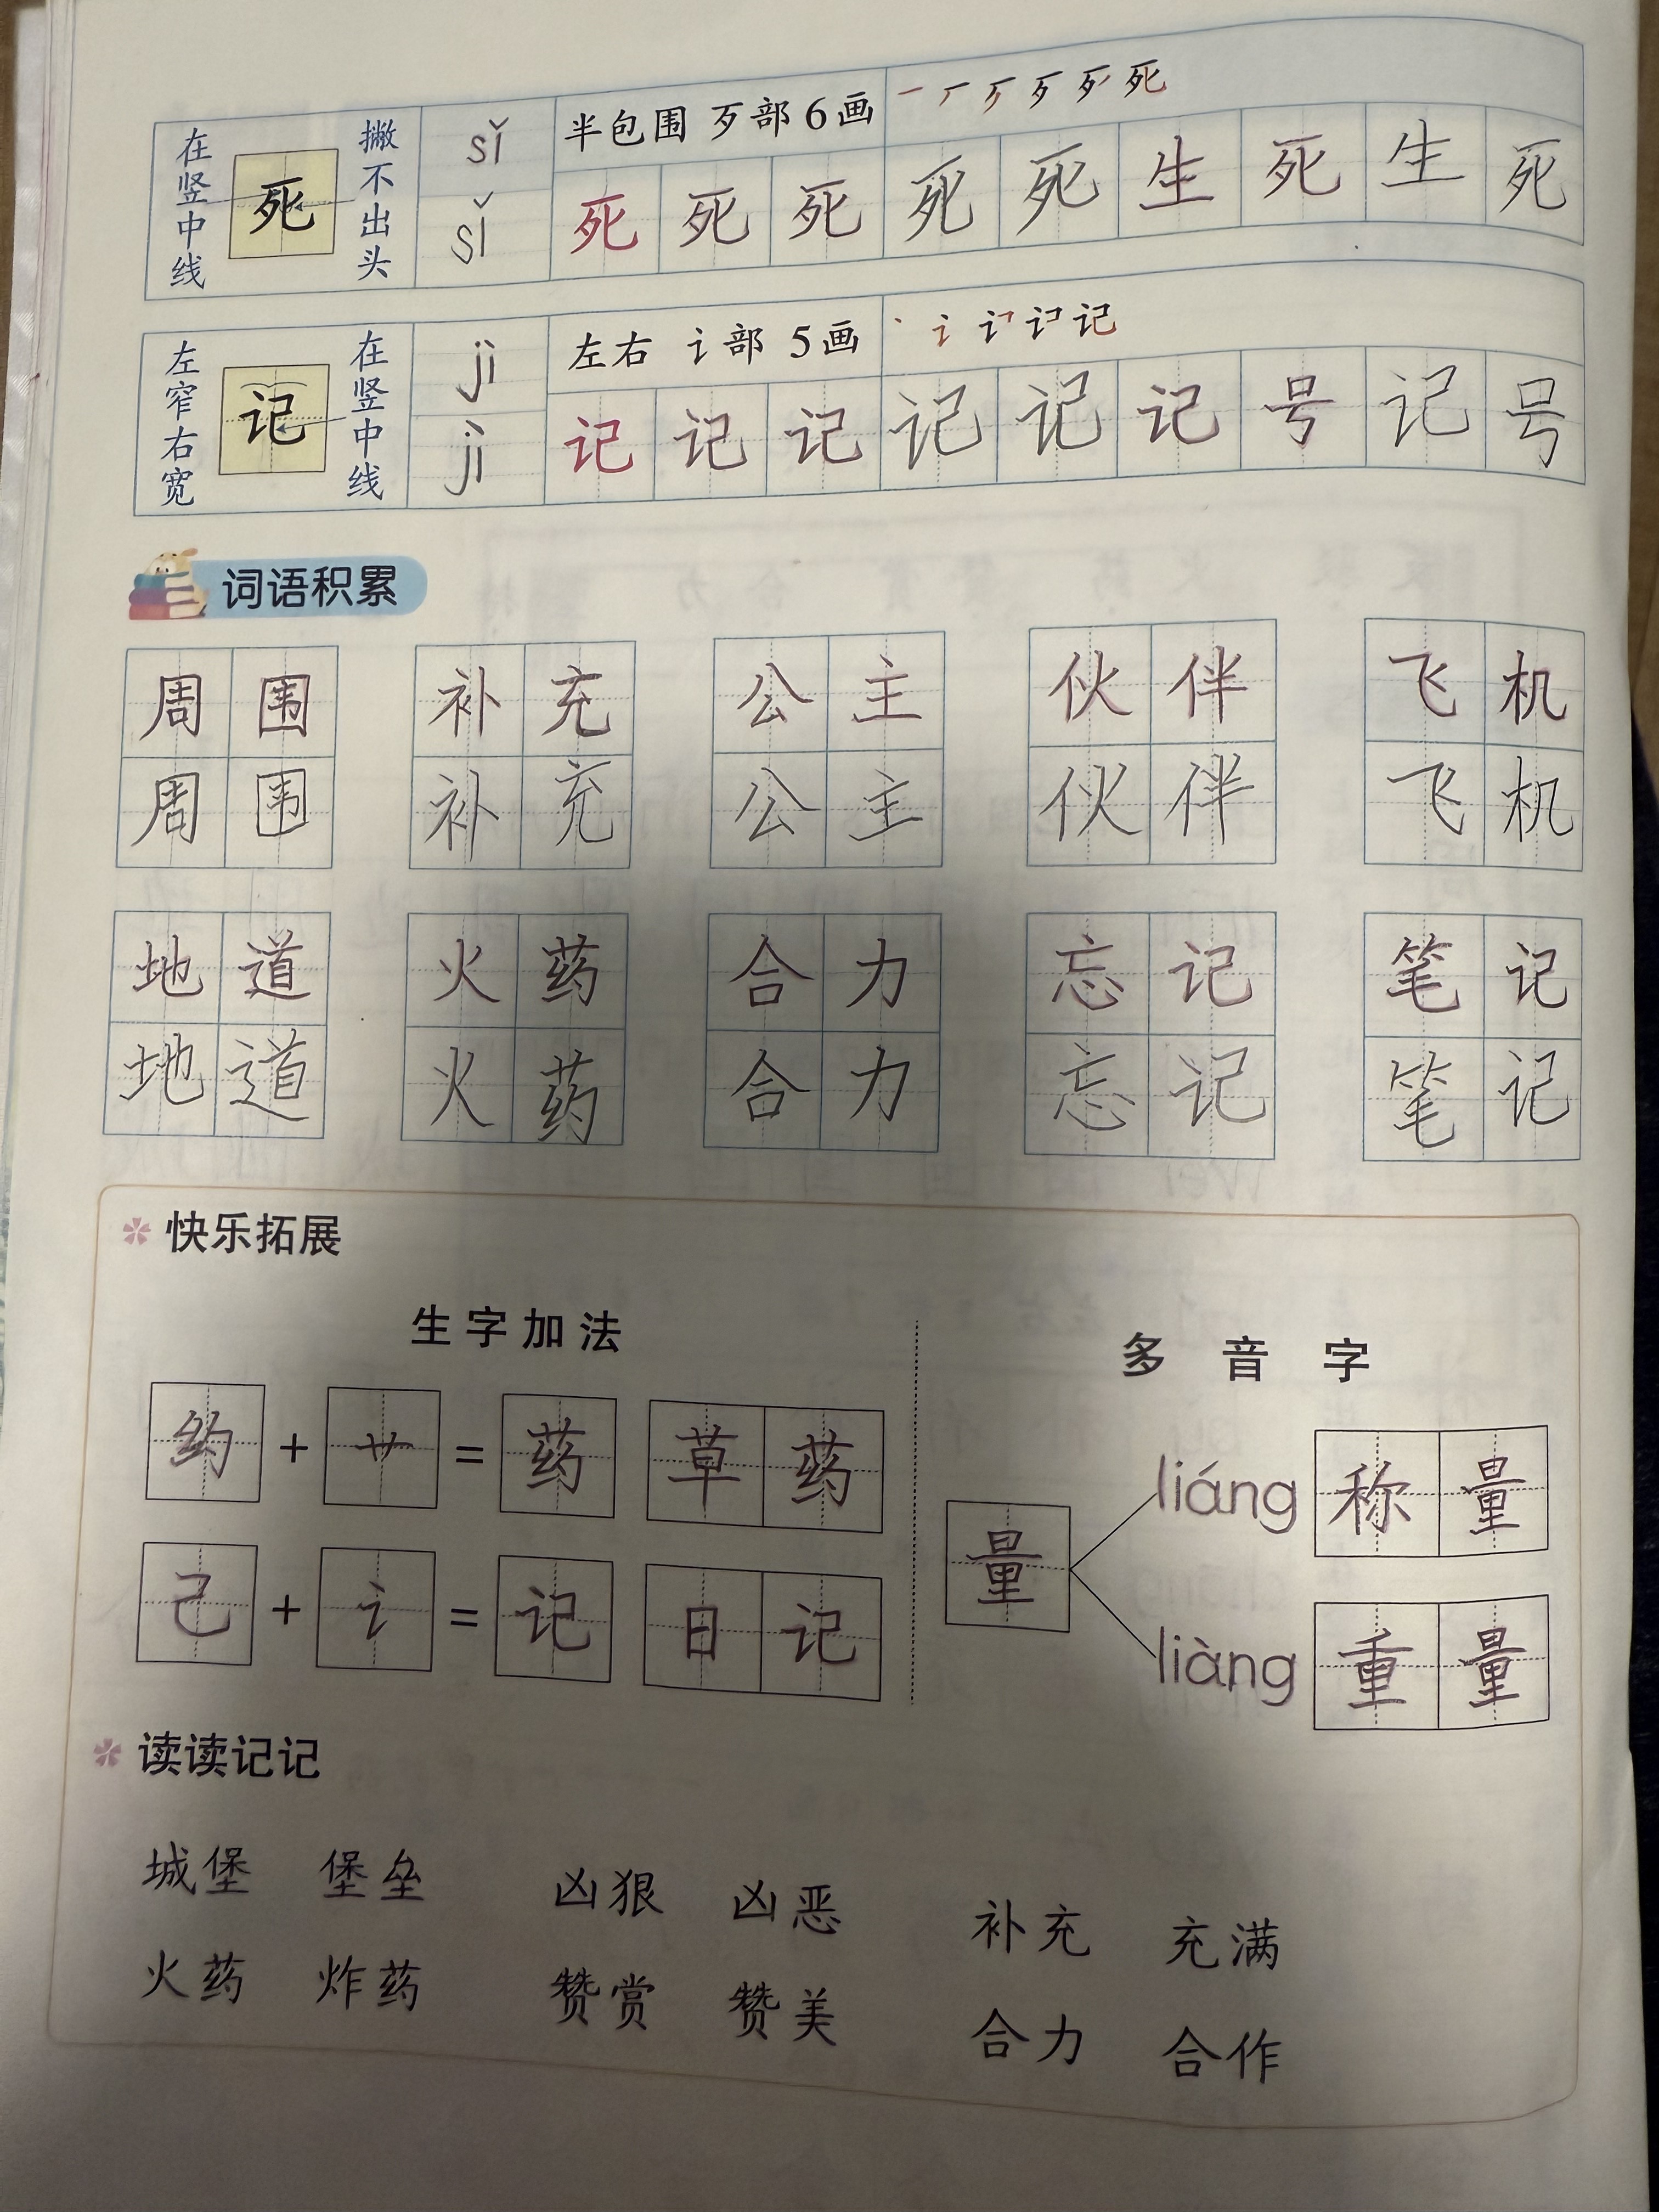 在竖中线 死 撇不出头 sǐ 半包围 歹部 6画 一 ㄏ 歹 歹 死
sǐ 死 死 死 死 死 生 死 生 死
左窄右宽 记 在竖中线 jì 左右 讠部 5画 丶 讠 记
jì 记 记 记 记 记 记 号 记 号
词语积累
周围 补充 公主 伙伴 飞机
周围 补充 公主 伙伴 飞机
地道 火药 合力 忘记 笔记
地道 火药 合力 忘记 笔记
快乐拓展
生字加法
约 + 艹 = 药 草药
己 + 讠 = 记 日记
多音字
liáng 称量
量
liàng 重量
读读记记
城堡 堡垒 凶狠 凶恶 补充 充满
火药 炸药 赞赏 赞美 合力 合作